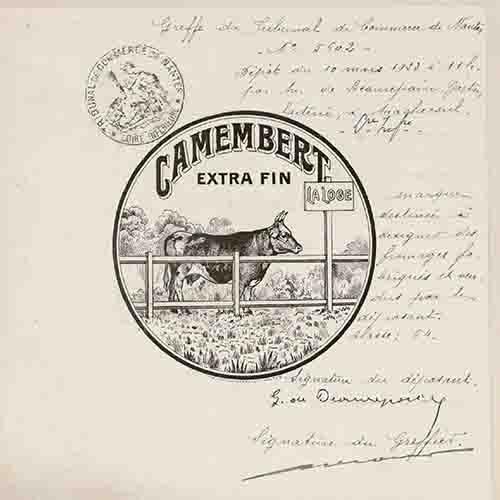 Greffe du Tribunal de Commerce de Nantes
N° 5602
Dépôt du 10 mars 1923 à 11h
par M. de Beaurepaire Gaston
laitier, à Machecoul
TRIBUNAL DE COMMERCE DE NANTES
LOIRE INFÉRIEURE
CAMEMBERT
EXTRA FIN
LA LOGE
marque
destinée à
désigner des
fromages fa
briqués et ven
dus par le
déposant.
classe: 54.
Signature du déposant.
G. de Beaurepaire
Signature du Greffier.